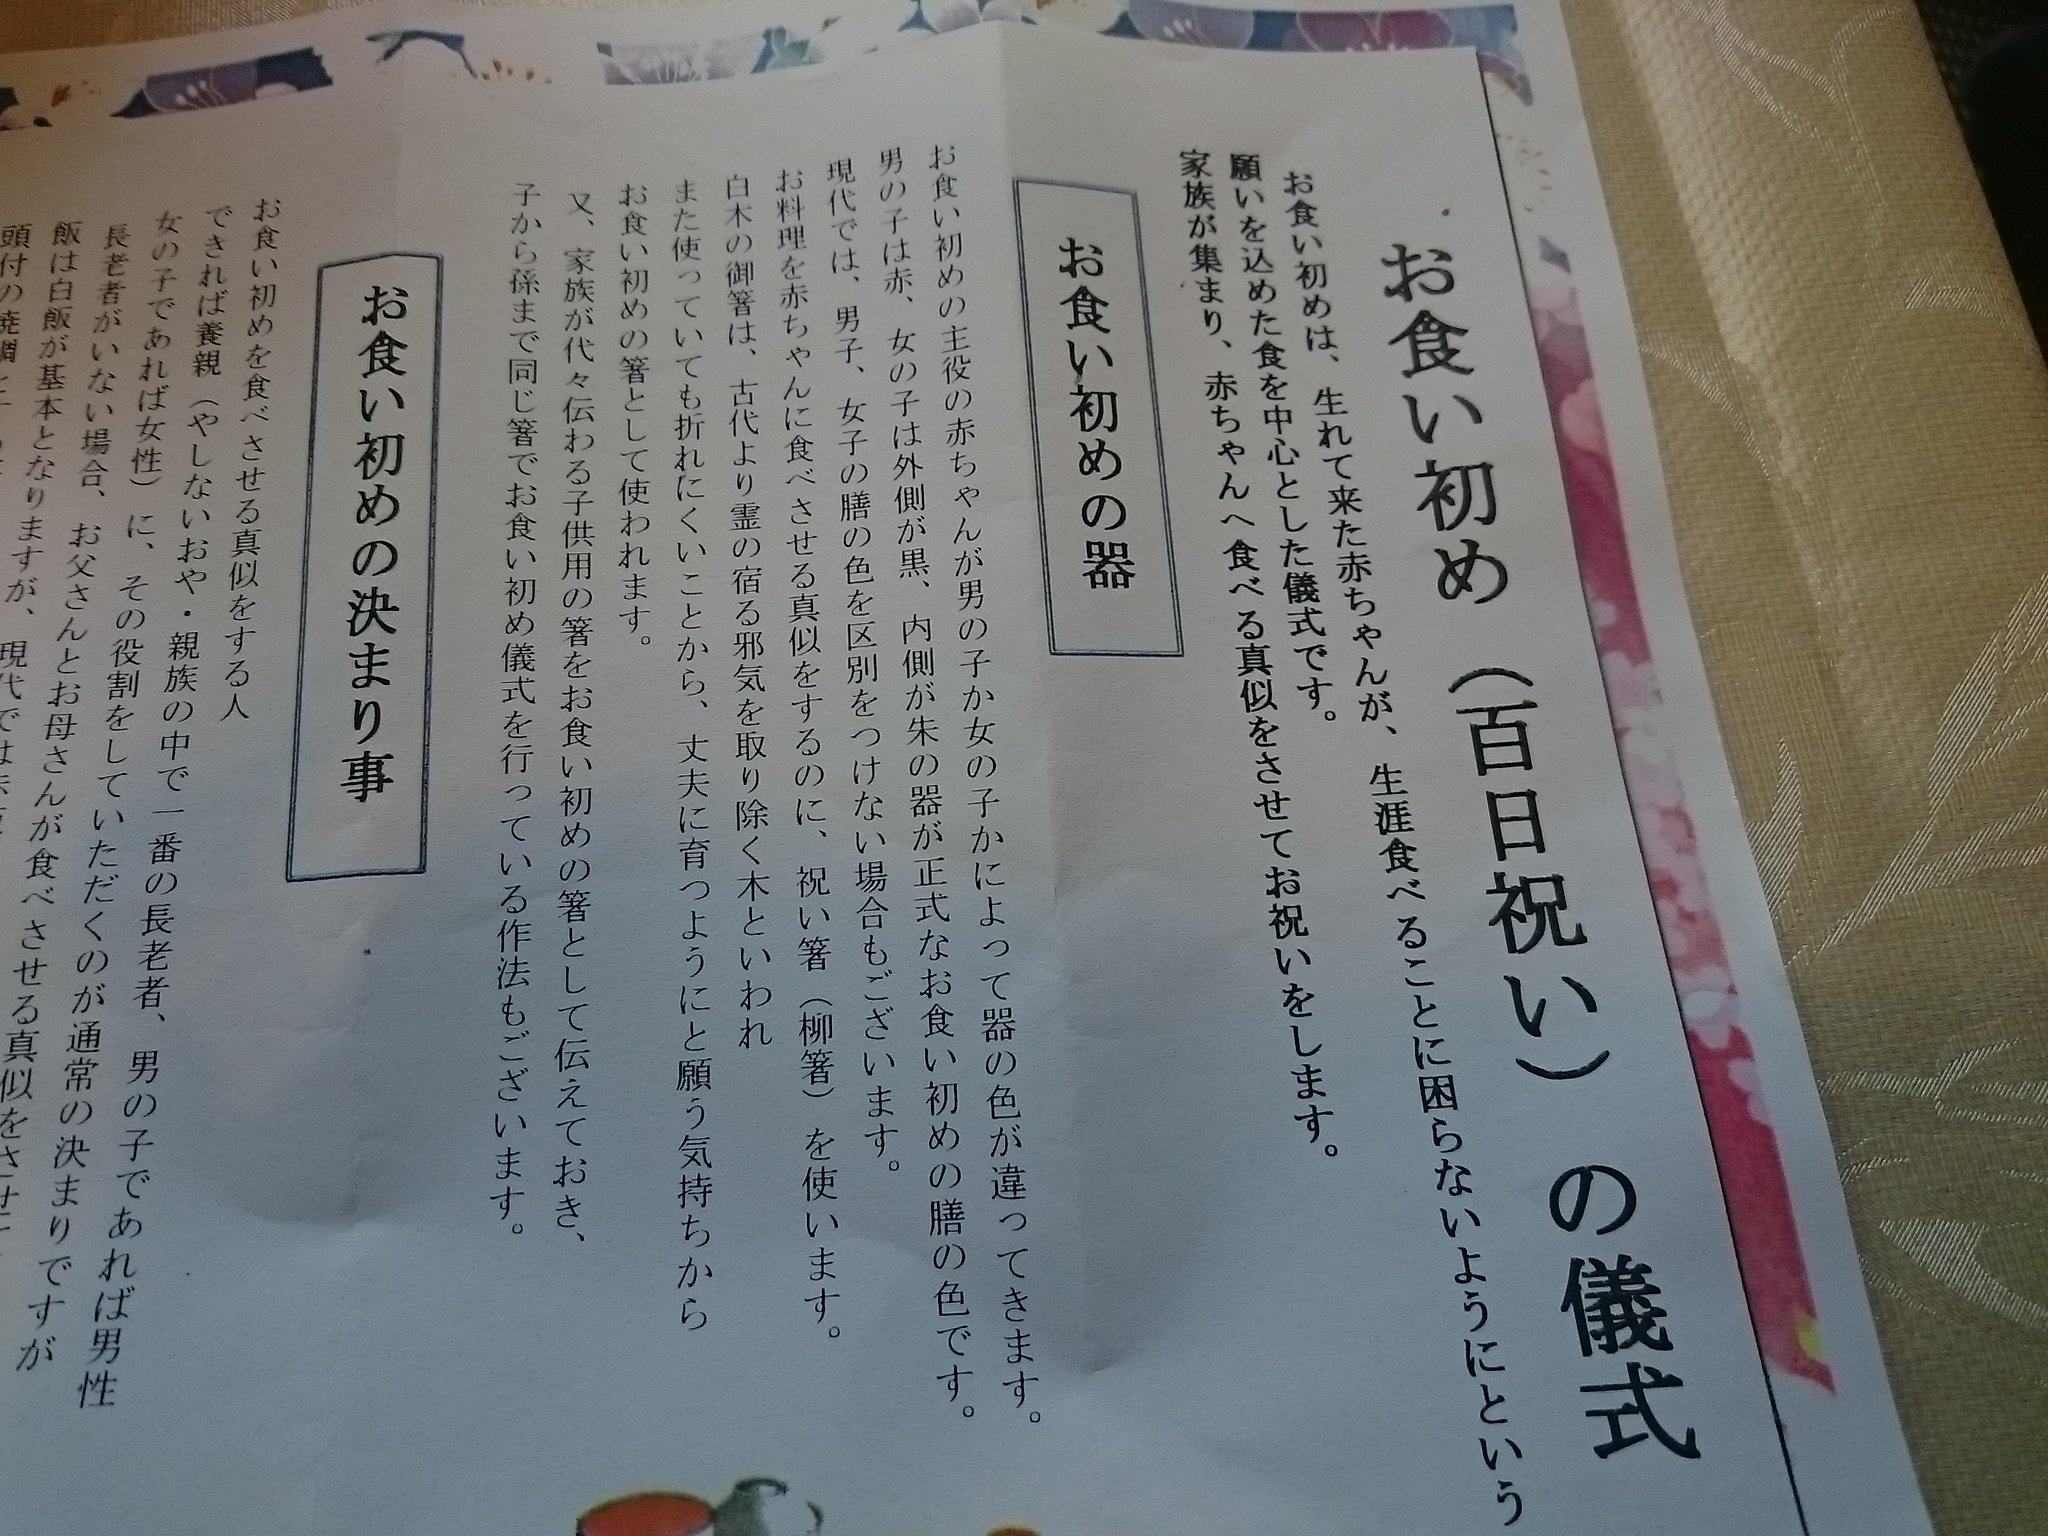 お食い初め（百日祝い）の儀式
お食い初めは、生れて来た赤ちゃんが、生涯食べることに困らないようにという
願いを込めた食を中心とした儀式です。
家族が集まり、赤ちゃんへ食べる真似をさせてお祝いをします。
お食い初めの器
お食い初めの主役の赤ちゃんが男の子か女の子かによって器の色が違ってきます。
男の子は赤、女の子は外側が黒、内側が朱の器が正式なお食い初めの膳の色です。
現代では、男子、女子の膳の色を区別をつけない場合もございます。
お料理を赤ちゃんに食べさせる真似をするのに、祝い箸（柳箸）を使います。
白木の御箸は、古代より霊の宿る邪気を取り除く木といわれ
また使っていても折れにくいことから、丈夫に育つようにと願う気持ちから
お食い初めの箸として使われます。
又、家族が代々伝わる子供用の箸をお食い初めの箸として伝えておき、
子から孫まで同じ箸でお食い初め儀式を行っている作法もございます。
お食い初めの決まり事
お食い初めを食べさせる真似をする人
できれば養親（やしないおや・親族の中で一番の長老者、男の子であれば男性
女の子であれば女性）に、その役割をしていただくのが通常の決まりですが
長老者がいない場合、お父さんとお母さんが食べさせる真似をさせ
飯は白飯が基本となりますが、現代では
頭付の焼鯛